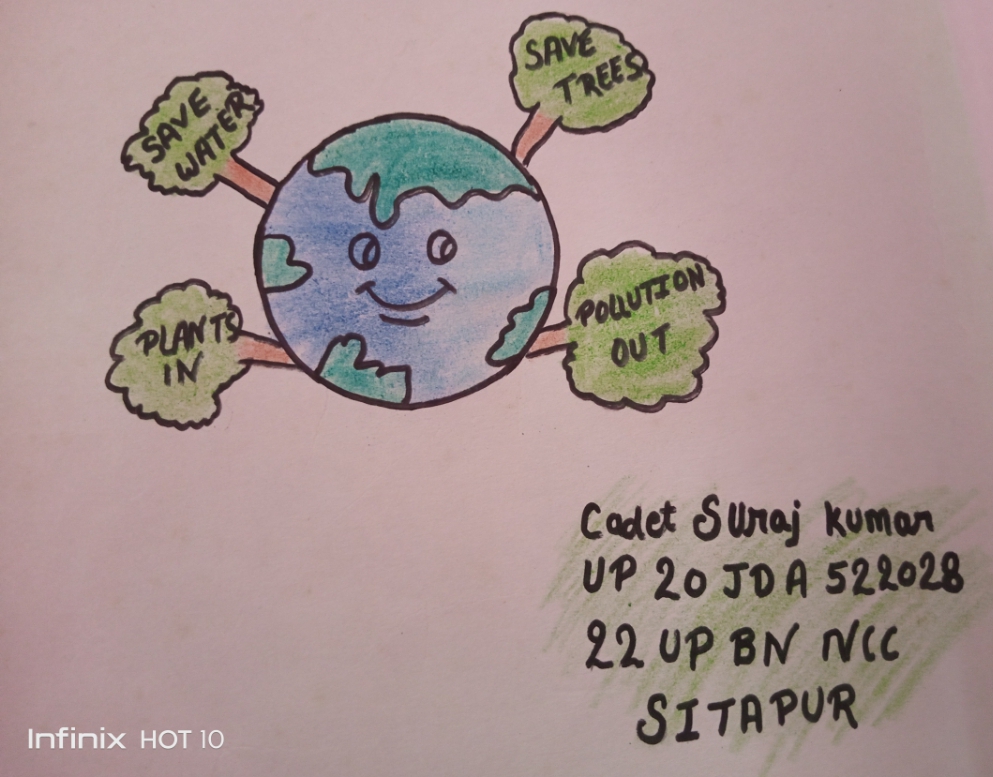 SAVE
TREES
SAVE
WATER
POLLUTION
OUT
PLANTS
IN
Cadet Suraj Kumar
UP 20 JDA 522028
22 UP BN NCC
SITAPUR
Infinix HOT 10